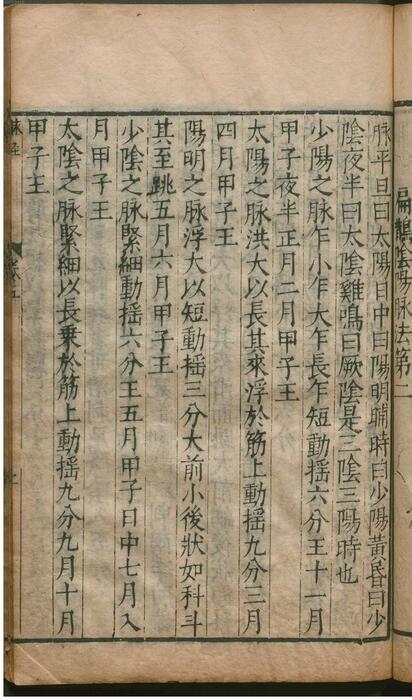 扁鵲陰陽脉法第二
脉平旦曰太陽日中曰陽明晡時曰少陽黃昏曰少
陰夜半曰太陰雞鳴曰厥陰是三陰三陽時也
少陽之脉乍小乍大乍長乍短動揺六分王十一月
甲子夜半正月二月甲子王
太陽之脉洪大以長其來浮於筋上動揺九分三月
四月甲子王
陽明之脉浮大以短動揺三分大前小後狀如科斗
其至跳五月六月甲子王
少陰之脉緊細動揺六分王五月甲子日中七月八
月甲子王
太陰之脉緊細以長乗於筋上動揺九分九月十月
甲子王